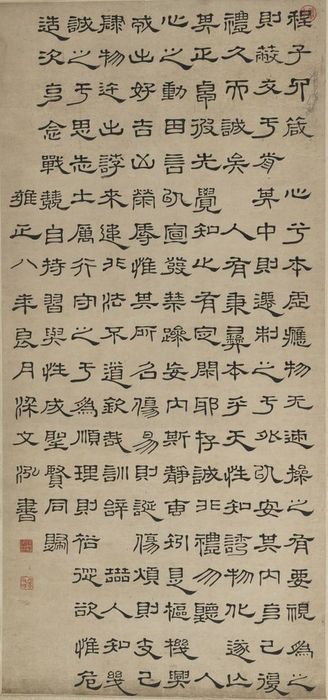 程子四箴 心兮本虛應物无迹操之有要視爲之
則蔽交于前其中則遷制之于外以安其内克己復
禮久而誠矣 人有秉彝本乎天性知誘物化遂亡
其正卓彼先覺知止有定閑邪存誠非禮勿聽 人
心之動因言以宣發禁躁妄内斯靜專矧是樞機興
戎出好吉凶榮辱惟其所召傷易則誕傷煩則支己
肆物迕出誖來違非法不道欽哉訓辭 喆人知幾
誠之于思志士厲行守之于爲順理則裕從欲惟危
造次克念戰兢自持習與性成聖賢同歸
雍正八年良月梁文泓書